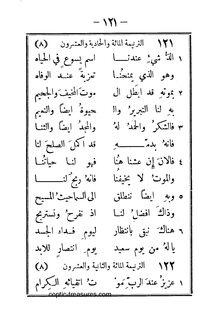 – ١٢١ –
١٢١ الترنيمة المائة والحادية والعشرون (٨)
١ ألذُّ شيءٍ عندنا اسم يسوع في الحياه
وهو الذي يمنحنا تعزيةً عند الوفاه
٢ بموتهِ قد ابطل ال موت المخيف والجحيم
به لنا التبريرُ وال حيوة ايضاً والنعيم
٣ فالشكرُ والحمدُ لهُ والمجدُ ايضاً والثنا
فإنهُ بدمهِ قد اكمل الصلح لنا
٤ فالآن إن عشنا هنا فهو لنا حياتنا
والموت لا يخيفنا فإنهُ ربحٌ لنا
٥ وبهِ ايضاً ننطلق الى السماحيث المسيح
وذاك افضلُ لنا اذ نفرح ونستريح
٦ هناك نبقى بانتظار ليوم فداء الجسد
يالهُ من يومٍ سعيد يوم انتصارٍ للابد
١٢٢ الترنيمة المائة والثانية والعشرون (٨)
١ عزيزٌ عند الربِّ موت اتقيائهِ الكرام
coptic-treasures.com